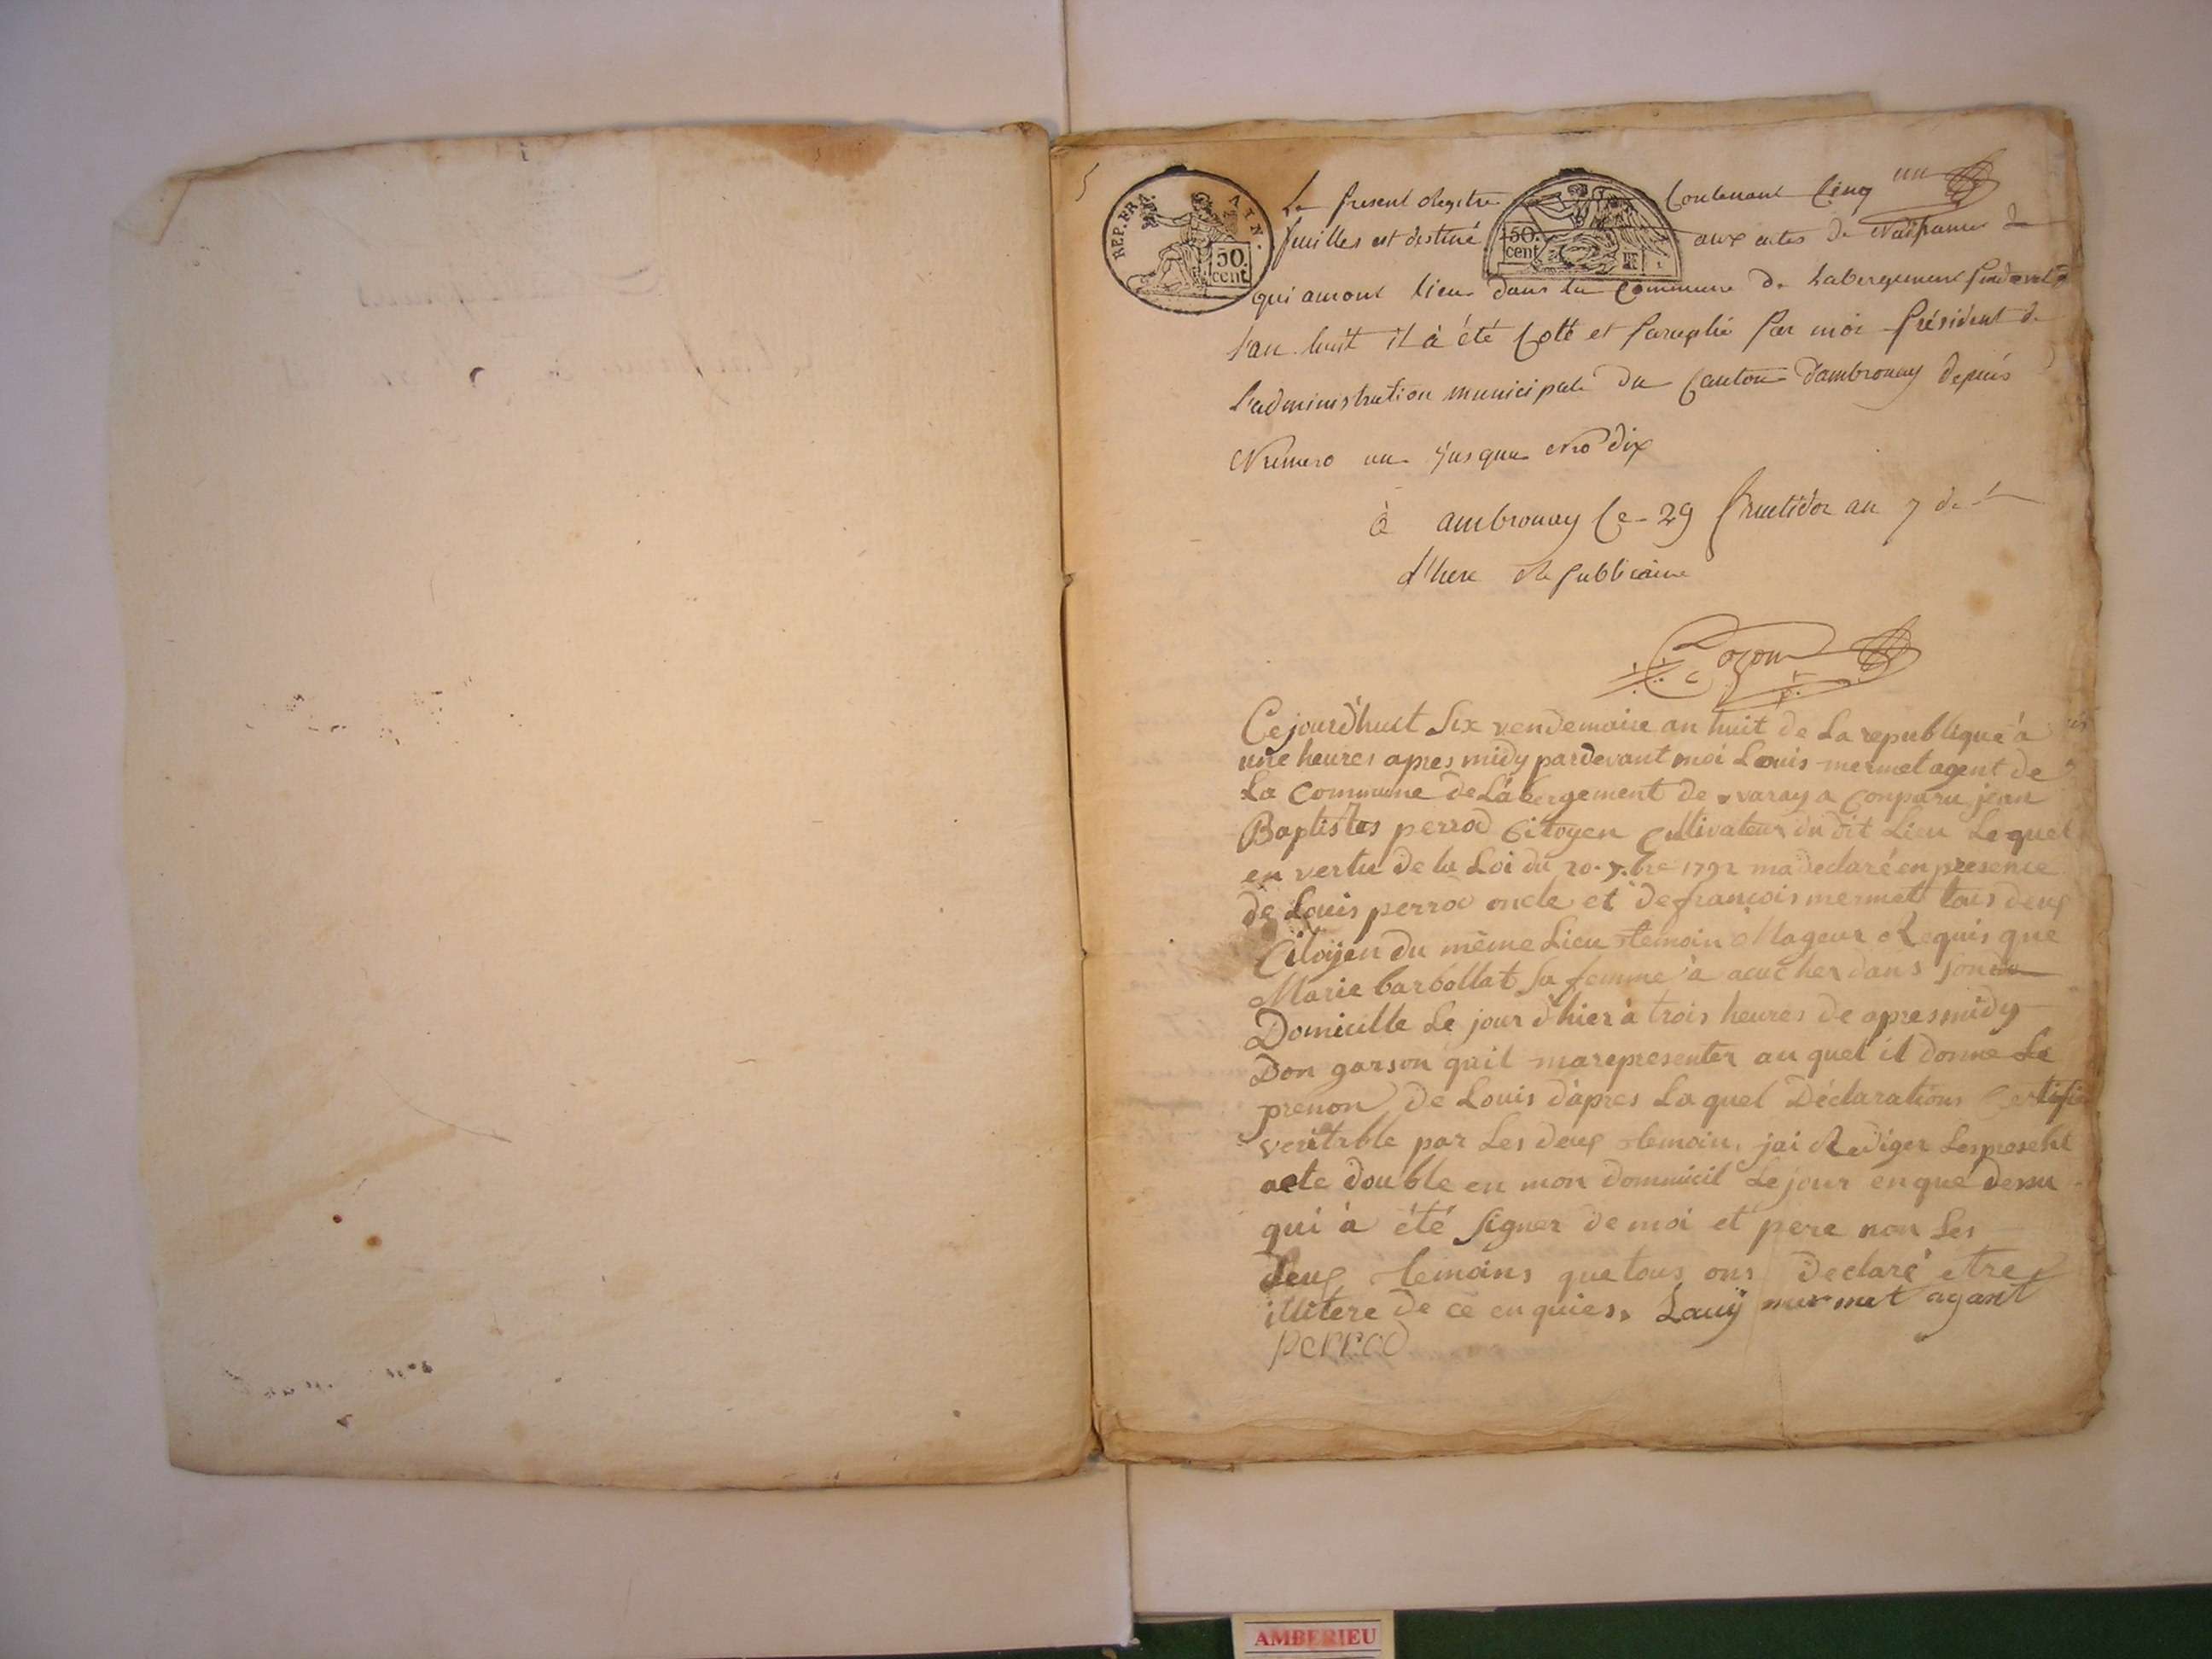 5
REP. FRA.
ATN.
50.
cent
50.
cent
RF
un
Le present Registre Contenant Cinq
feuilles est destiné aux actes de Naissance
qui auront lieu dans la Commune de Labergement pendant
l'an huit il à été Cotté et Paraphé Par moi Président de
l'administration municipale du Canton d'ambronay depuis
Numero un jusqua No dix
à ambronay Ce 29 fructidor an 7 de
l'here Republicaine
Cejourd'huit Six vendemaire an huit de La republique à
une heures apres midy pardevant moi Louis mermet agent de
La Commune de Labergement de varay a Conparu jean
Baptistes perrod Citoyen Cultivateur du dit Lieu Lequel
en vertu de la Loi du 20. 7.bre 1792 ma declaré en presence
de Louis perrod oncle et de françois mermet tous deux
Citoyen du même Lieu temoin Mageur Requis que
Marie barbollat Sa femme à acucher dans son
Domicille Le jour d'hier à trois heures de apresmidy
Don garson quil ma representer au quel il donne Le
prenon de Louis d'apres La quel Déclarations Certifie
veritable par Les deux temoin, jai Rediger Les present
acte double en mon dommicil Le jour en que dessu
qui à été Signer de moi et pere non Les
deux temoins que tous ons declaré etre
illitere de ce enquies. Louij mermet agant
perrod
AMBERIEU